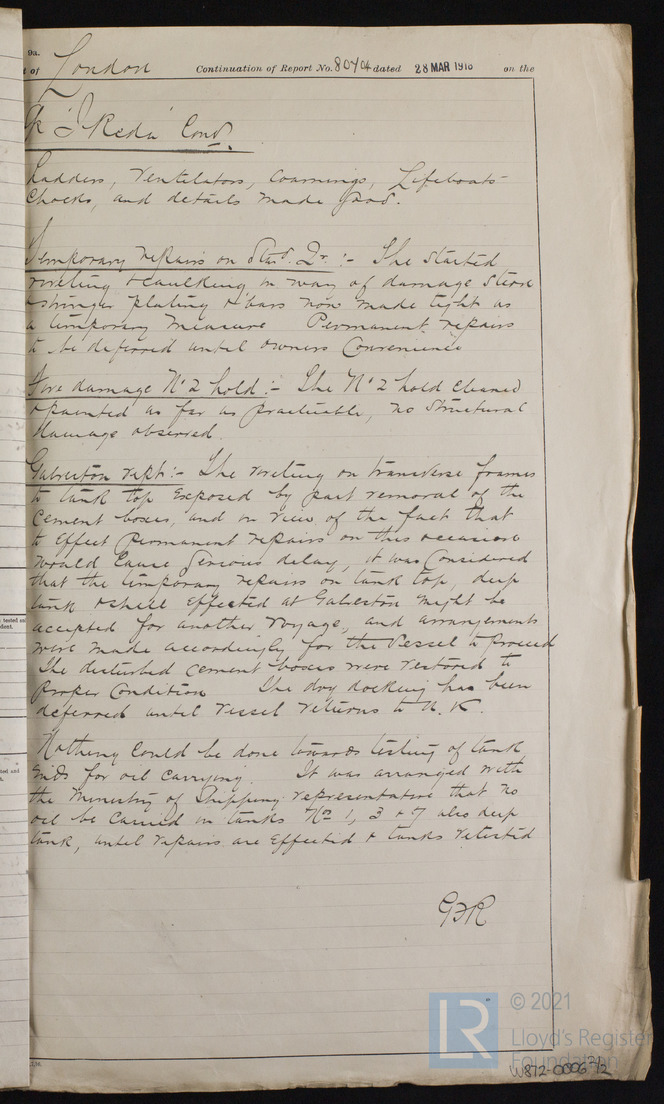 9a.
t of London Continuation of Report No. 80704 dated 28 MAR 1918 on the
"Ikeda" Cont^d.
Ladders, Ventilators, Coamings, Lifeboats
Chocks, and details made good.
Temporary repairs on Sta^d. Q^r :- The started
riveting & caulking in way of damage stern
& stringer plating & bars now made tight as
a temporary measure Permanent repairs
to be deferred until owners Convenience
Fire damage N^o 2 hold :- The N^o 2 hold cleaned
& painted as far as practicable, no Structural
damage observed.
Galveston rept :- The riveting on transverse frames
to tank top exposed by part removal of the
Cement boxes, and in view of the fact that
to effect Permanent repairs on this occasion
would cause serious delay, it was Considered
that the temporary repairs on tank top, deep
tank & shell effected at Galveston might be
accepted for another voyage, and arrangements
were made accordingly for the Vessel to proceed
The disturbed cement boxes were restored to
proper Condition The dry docking has been
deferred until Vessel returns to U.K.
Nothing could be done towards testing of tank
ends for oil carrying. It was arranged with
the Ministry of Shipping representative that no
oil be Carried in tanks N^os 1, 3 & 7 also deep
tank, until repairs are effected & tanks retested
GFR
LR
© 2021
Lloyd's Register
Foundation
W872-0006 2/2